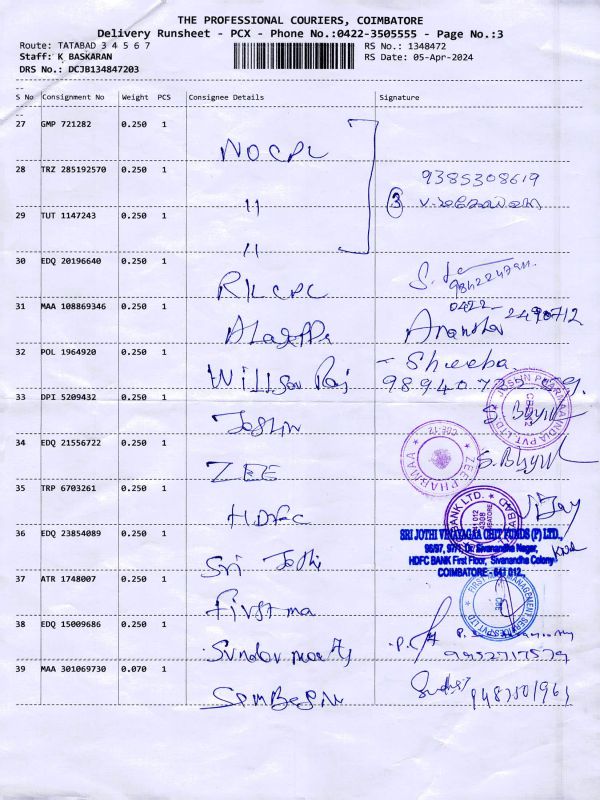 THE PROFESSIONAL COURIERS, COIMBATORE
Delivery Runsheet - PCX - Phone No.:0422-3505555 - Page No.:3
Route: TATABAD 3 4 5 6 7 RS No.: 1348472
Staff: K BASKARAN RS Date: 05-Apr-2024
DRS No.: DCJB134847203
S No Consignment No Weight PCS Consignee Details Signature
27 GMP 721282 0.250 1
NOCPL
28 TRZ 285192570 0.250 1 9385308619
" 3
29 TUT 1147243 0.250 1
"
30 EDQ 20196640 0.250 1
RKCPC
31 MAA 108869346 0.250 1 0422-2490712
32 POL 1964920 0.250 1 - Sheeba.
Willson Raj
33 DPI 5209432 0.250 1 JOSLIN PHARMAA INDIA PVT.LTD
Joslin
34 EDQ 21556722 0.250 1 ZEE PHARMAA CBE-12
ZEE
35 TRP 6703261 0.250 1 Vijay
HDFC
36 EDQ 23854089 0.250 1 SRI JOTHI VINAYAGAA CHIT FUNDS (P) LTD.,
Sivanandha Nagar,
Sri Jothi HDFC BANK First Floor, Sivanandha Colony
COIMBATORE - 641 012.
37 ATR 1748007 0.250 1
First ma
38 EDQ 15009686 0.250 1
9952717579
39 MAA 301069730 0.070 1